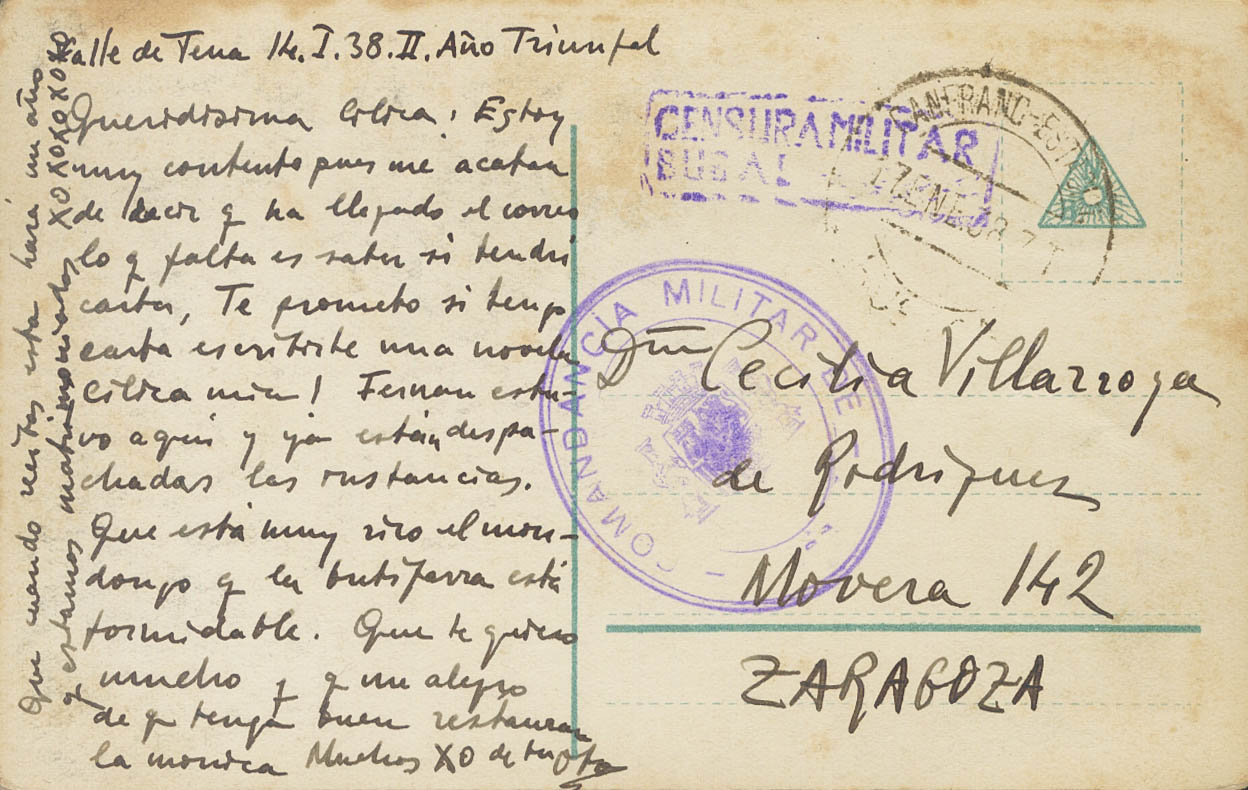 Valle de Tena 14.I.38.II. Año Triunfal
Queridisima Cilica: Estoy
muy contento pues me acaban
de decir q ha llegado el correo
lo q falta es saber si tendré
carta, Te prometo si tengo
carta escribirte una novela
Cilica mia! Fernan estu-
vo aquí y ya están despa-
chadas las instancias.
Que está muy rico el mon-
dongo q la butifarra está
formidable. Que te quiero
mucho y q me alegro
de q tenga buen
la monica Muchos XO de tu
Que cuando recibas esta hará un año
q estamos matrimoniados XO XOXOXOXOXO
CENSURA MILITAR
CANFRANC-EST
17 ENE 38 7T
COMANDANCIA MILITAR DE
Dña Cecilia Villarroya
de Rodríguez
Movera 142
ZARAGOZA